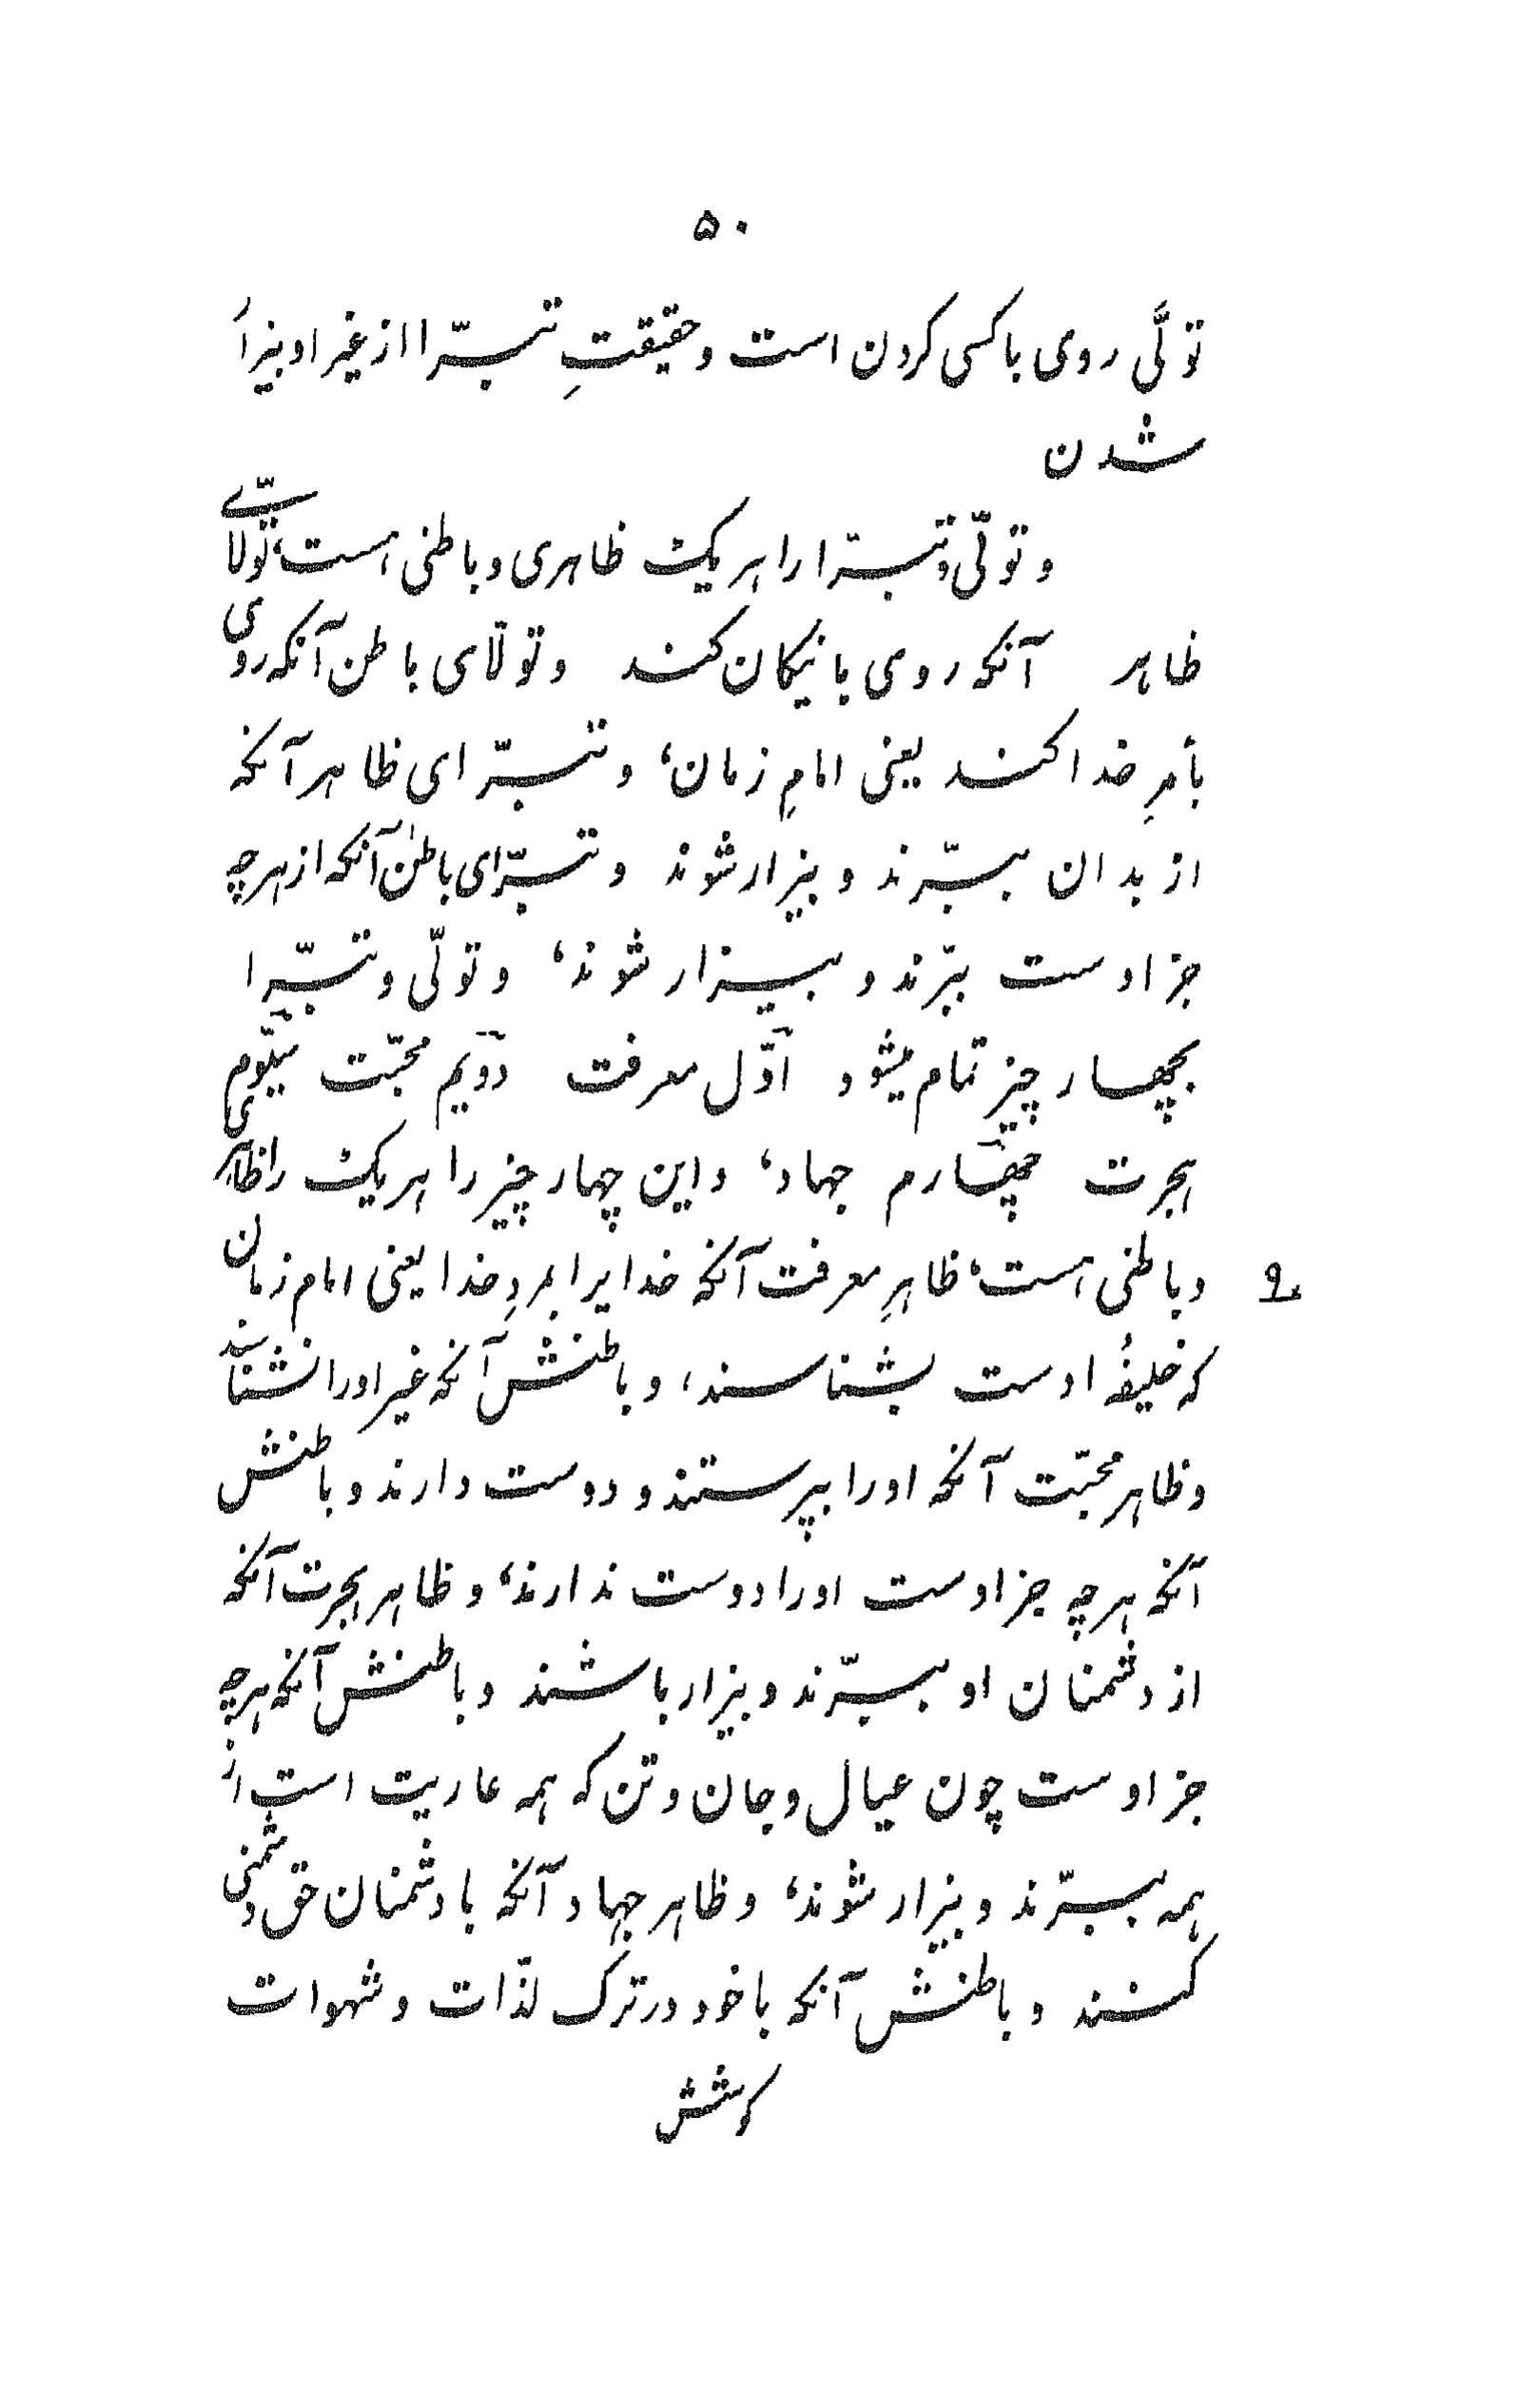 ۵۰
تولَّی روی باکسی کردن است و حقیقتِ تبرّا از غیر او بیزا
شدن
و تولّی و تبرّا را هر یک ظاهری و باطنی هست، تولّای
ظاهر آنکه روی با نیکان کنند و تولّای باطن آنکه روی
بأمرِ خدا کنند یعنی امامِ زمان، و تبرّای ظاهر آنکه
از بدان ببرّند و بیزار شوند و تبرّای باطن آنکه از هرچه
جز اوست ببرّند و بیزار شوند، و تولّی و تبرّا
بچهار چیز تمام میشود اوّل معرفت دوّیم محبّت سیّوم
هجرت چهارم جهاد، و این چهار چیز را هر یک را ظاهری
و باطنی هست، ظاهرِ معرفت آنکه خدایرا بمردِ خدا یعنی امام زمان
که خلیفهٔ اوست بشناسند، و باطنش آنکه غیر او را نشناسند
و ظاهر محبّت آنکه او را بپرستند و دوست دارند و باطنش
آنکه هرچه جز اوست او را دوست ندارند، و ظاهر هجرت آنکه
از دشمنان او ببرّند و بیزار باشند و باطنش آنکه هرچه
جز اوست چون عیال و جان و تن که همه عاریت است از
همه ببرّند و بیزار شوند، و ظاهر جهاد آنکه با دشمنان حق دشمنی
کنند و باطنش آنکه با خود در ترک لذّات و شهوات
کوشش